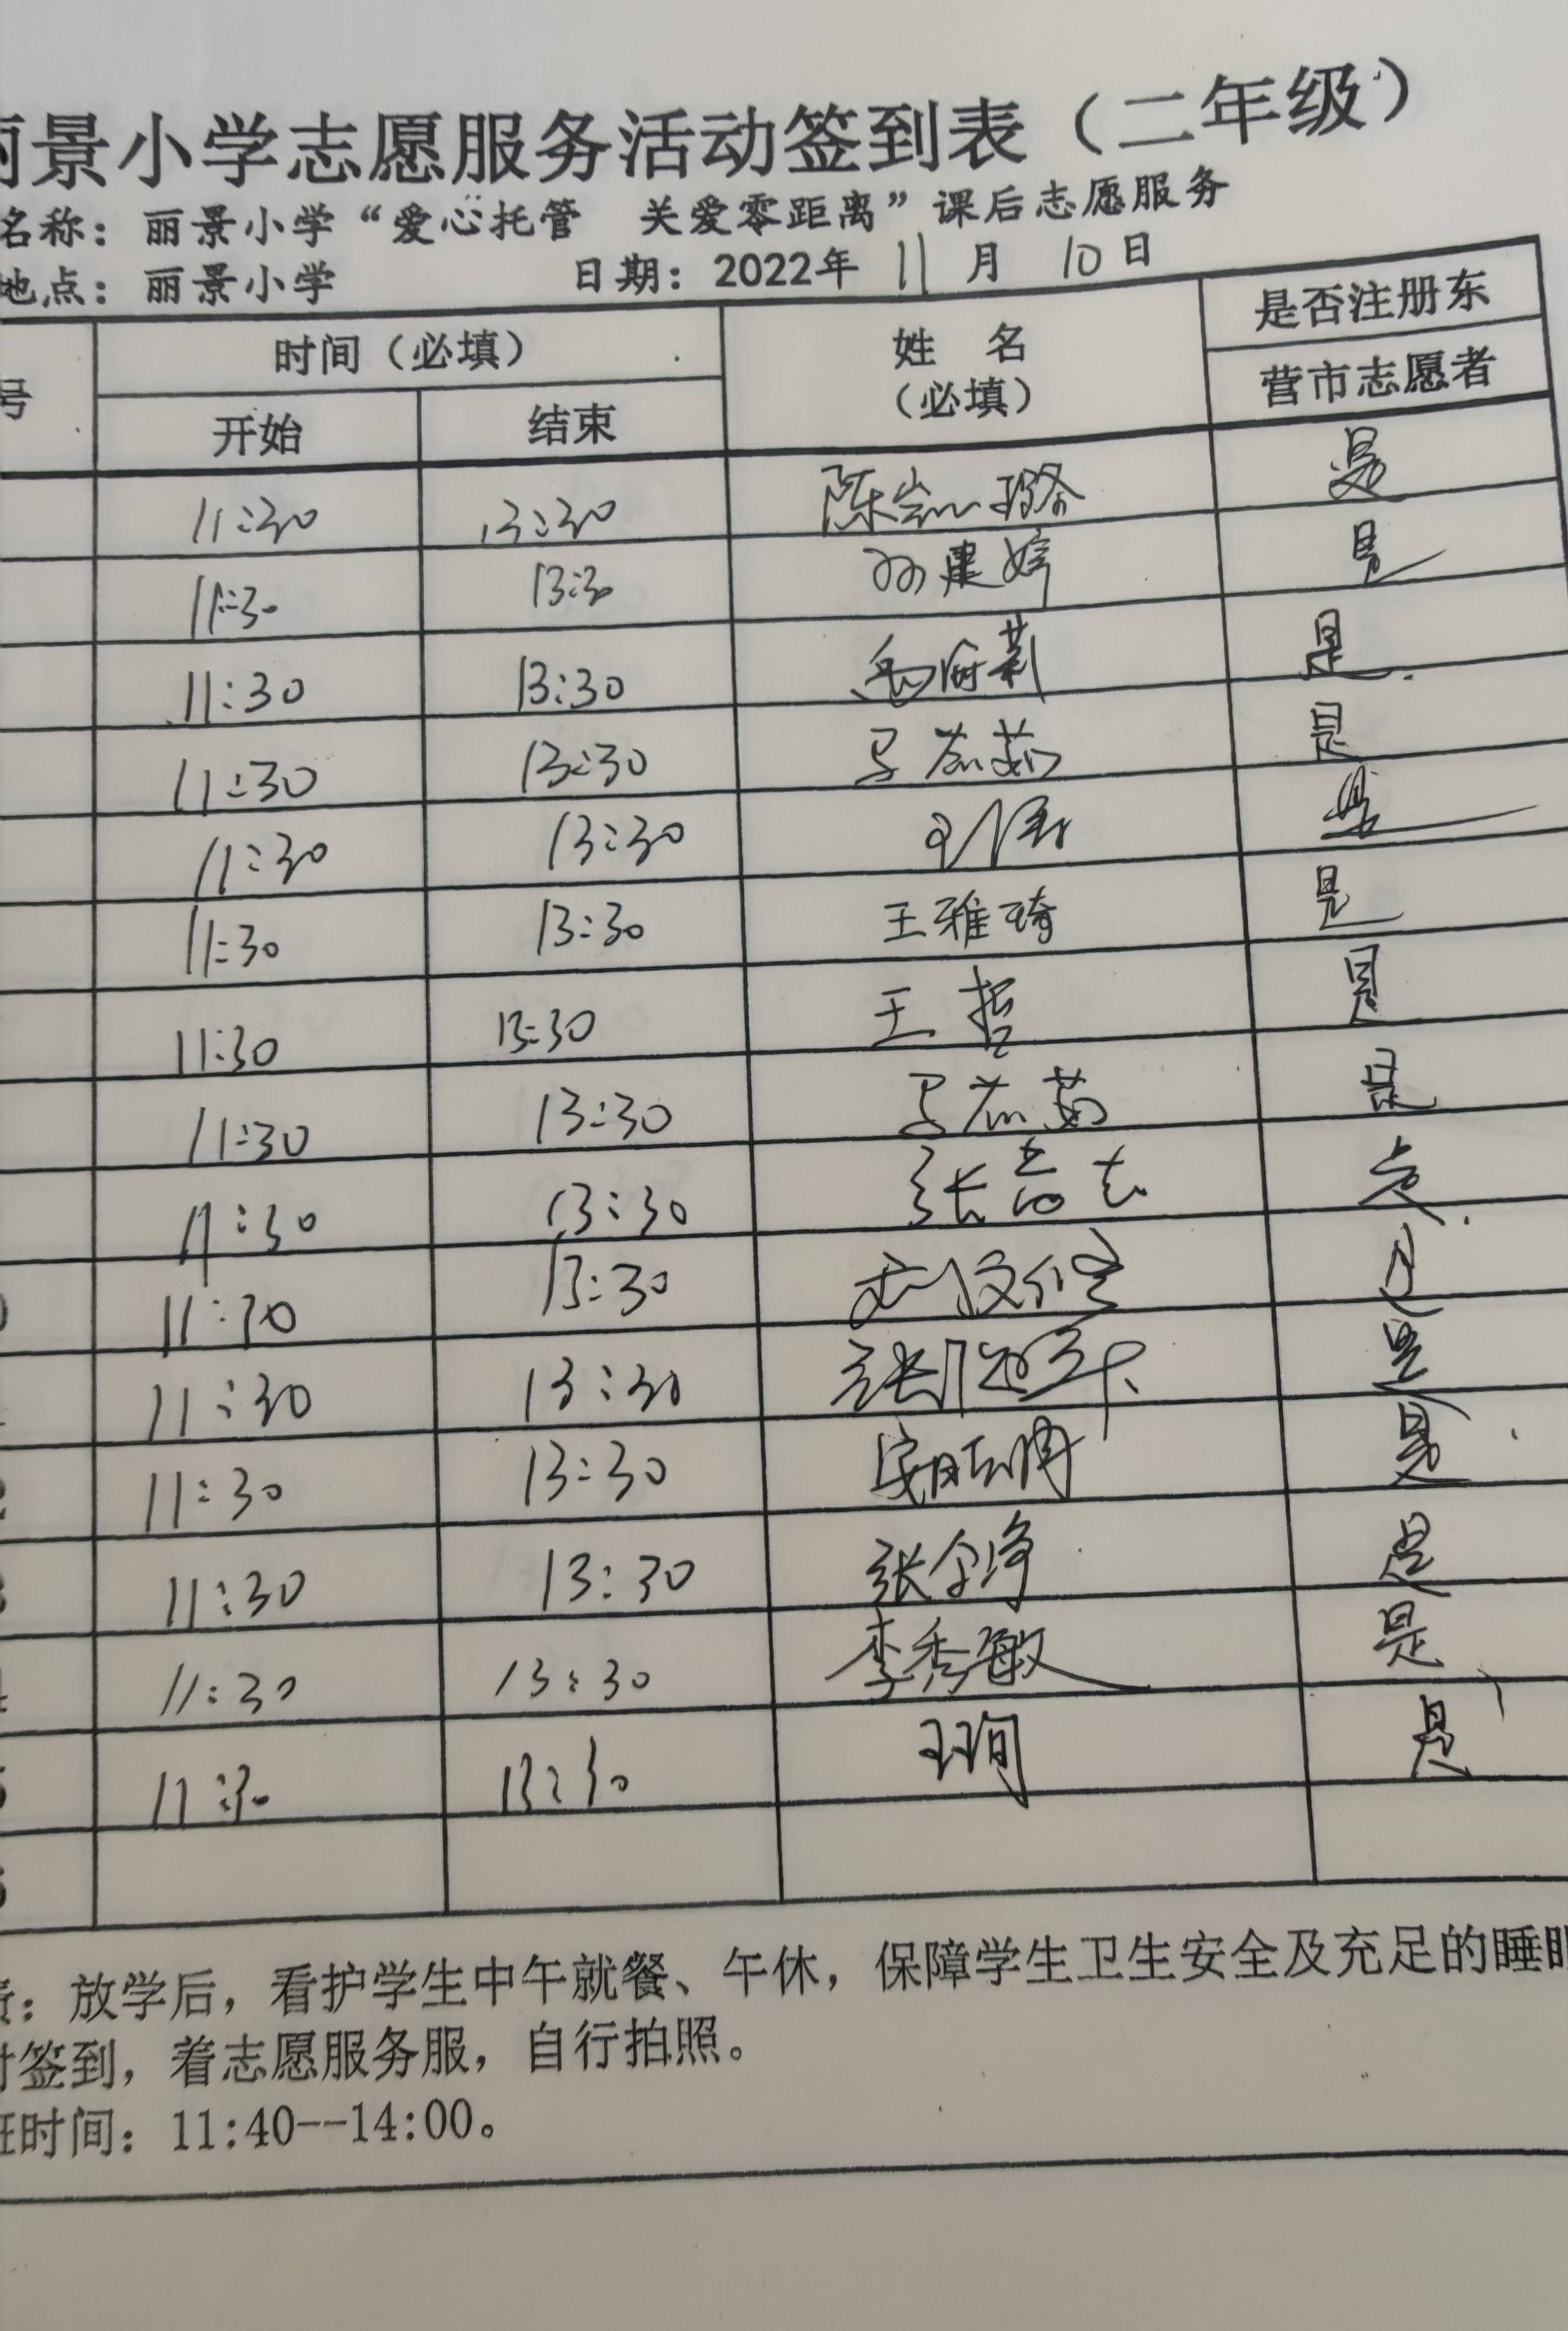 丽景小学志愿服务活动签到表（二年级）
名称：丽景小学“爱心托管 关爱零距离”课后志愿服务
地点：丽景小学 日期：2022年 11 月 10 日
号 时间（必填） 姓 名 （必填） 是否注册东
开始 结束 营市志愿者
11:30 13:30 陈 璐 是
11:30 13:30 孙建婷 是
11:30 13:30 莉 是
11:30 13:30 马 茹 是
11:30 13:30 是
11:30 13:30 王雅琦 是
11:30 13:30 王哲 是
11:30 13:30 马 茹 是
11:30 13:30 张 志 是
11:30 13:30 是
11:30 13:30 张 是
11:30 13:30 是
11:30 13:30 张 是
11:30 13:30 李秀敏 是
11:30 13:30 王珣 是
责：放学后，看护学生中午就餐、午休，保障学生卫生安全及充足的睡眠
时签到，着志愿服务服，自行拍照。
班时间：11:40--14:00。